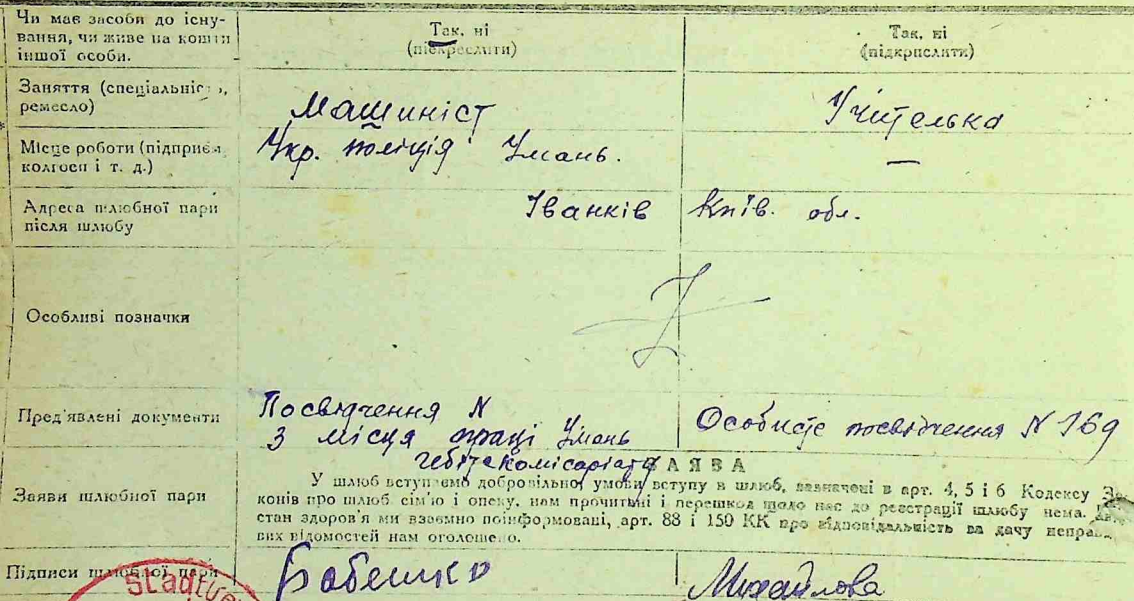 Чи має засоби до існу-
вання, чи живе на кошти
іншої особи.
Так, ні
(підкреслити)
Так, ні
(підкрислити)
Заняття (спеціальність,
ремесло)
Машиніст
Учителька
Місце роботи (підприєм.
колгосп і т. д.)
Укр. поліція Умань.
—
Адреса шлюбної пари
після шлюбу
Іванків Київ. обл.
Особливі позначки
Пред'явлені документи
Посвідчення N
з місця праці Умань
гебітскомісаріату
Особисте посвідчення N 169
Заяви шлюбної пари
ЗАЯВА
У шлюб вступаємо добровільно, умови вступу в шлюб, зазначені в арт. 4, 5 і 6 Кодексу За-
конів про шлюб сім'ю і опеку, нам прочитані і перешкод щодо нас до реєстрації шлюбу нема.
стан здоров'я ми взаємно поінформовані, арт. 88 і 150 КК про відповідальність за дачу неправ
вих відомостей нам оголошено.
Підписи шлюбної пари
Бабешко
Михайлова